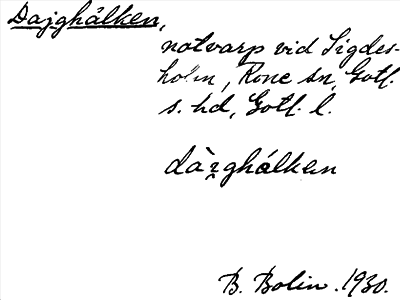 Dajghálken,
notvarp vid Sigdes-
holm, Rone sn, Gotl.
s. hd, Gotl. l.
dàʒghálkən
B. Bolin. 1930.